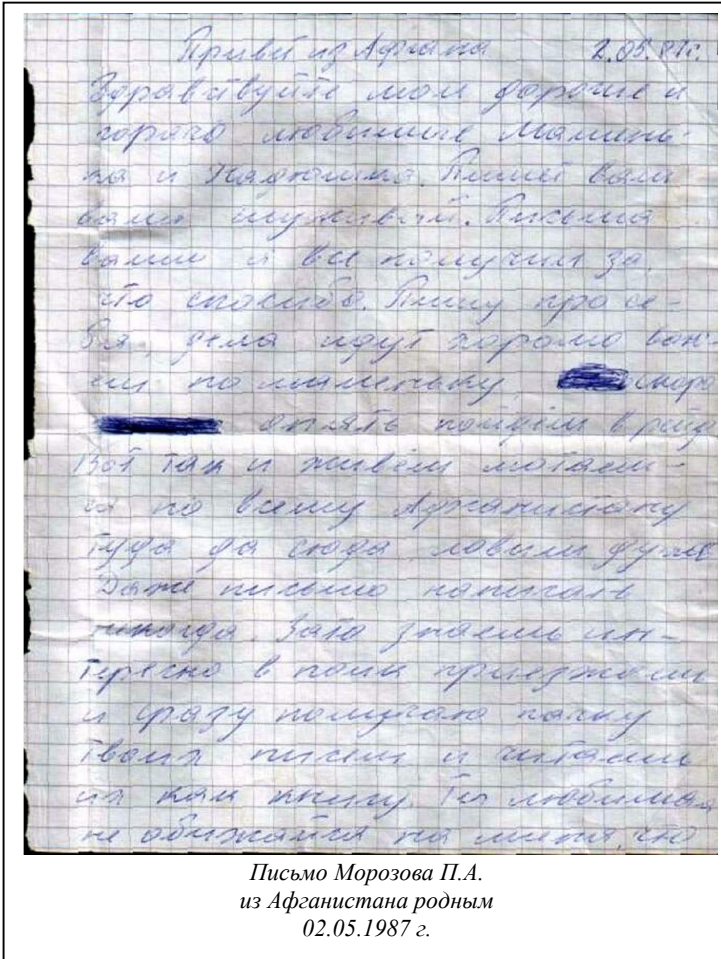 Привет из Афгана 2.05.87г.
Здравствуйте мои дорогие и
горячо любимые Мамень-
ка и Надюшка. Пишет вам
ваш служивый. Письма
ваши я все получил за
что спасибо. Пишу про се-
бя, дела идут хорошо
по маленьку, скоро
опять пойдём в рейд
Вот так и живём мотаем-
ся по всему Афганистану
туда да сюда, ловим
Даже письмо написать
некогда. Зато знаешь ин-
тересно в полк приезжаем
и сразу получаю пачку
твоих писем и читаешь
их как книгу. Ты любимая
не обижайся на меня, что
Письмо Морозова П.А.
из Афганистана родным
02.05.1987 г.